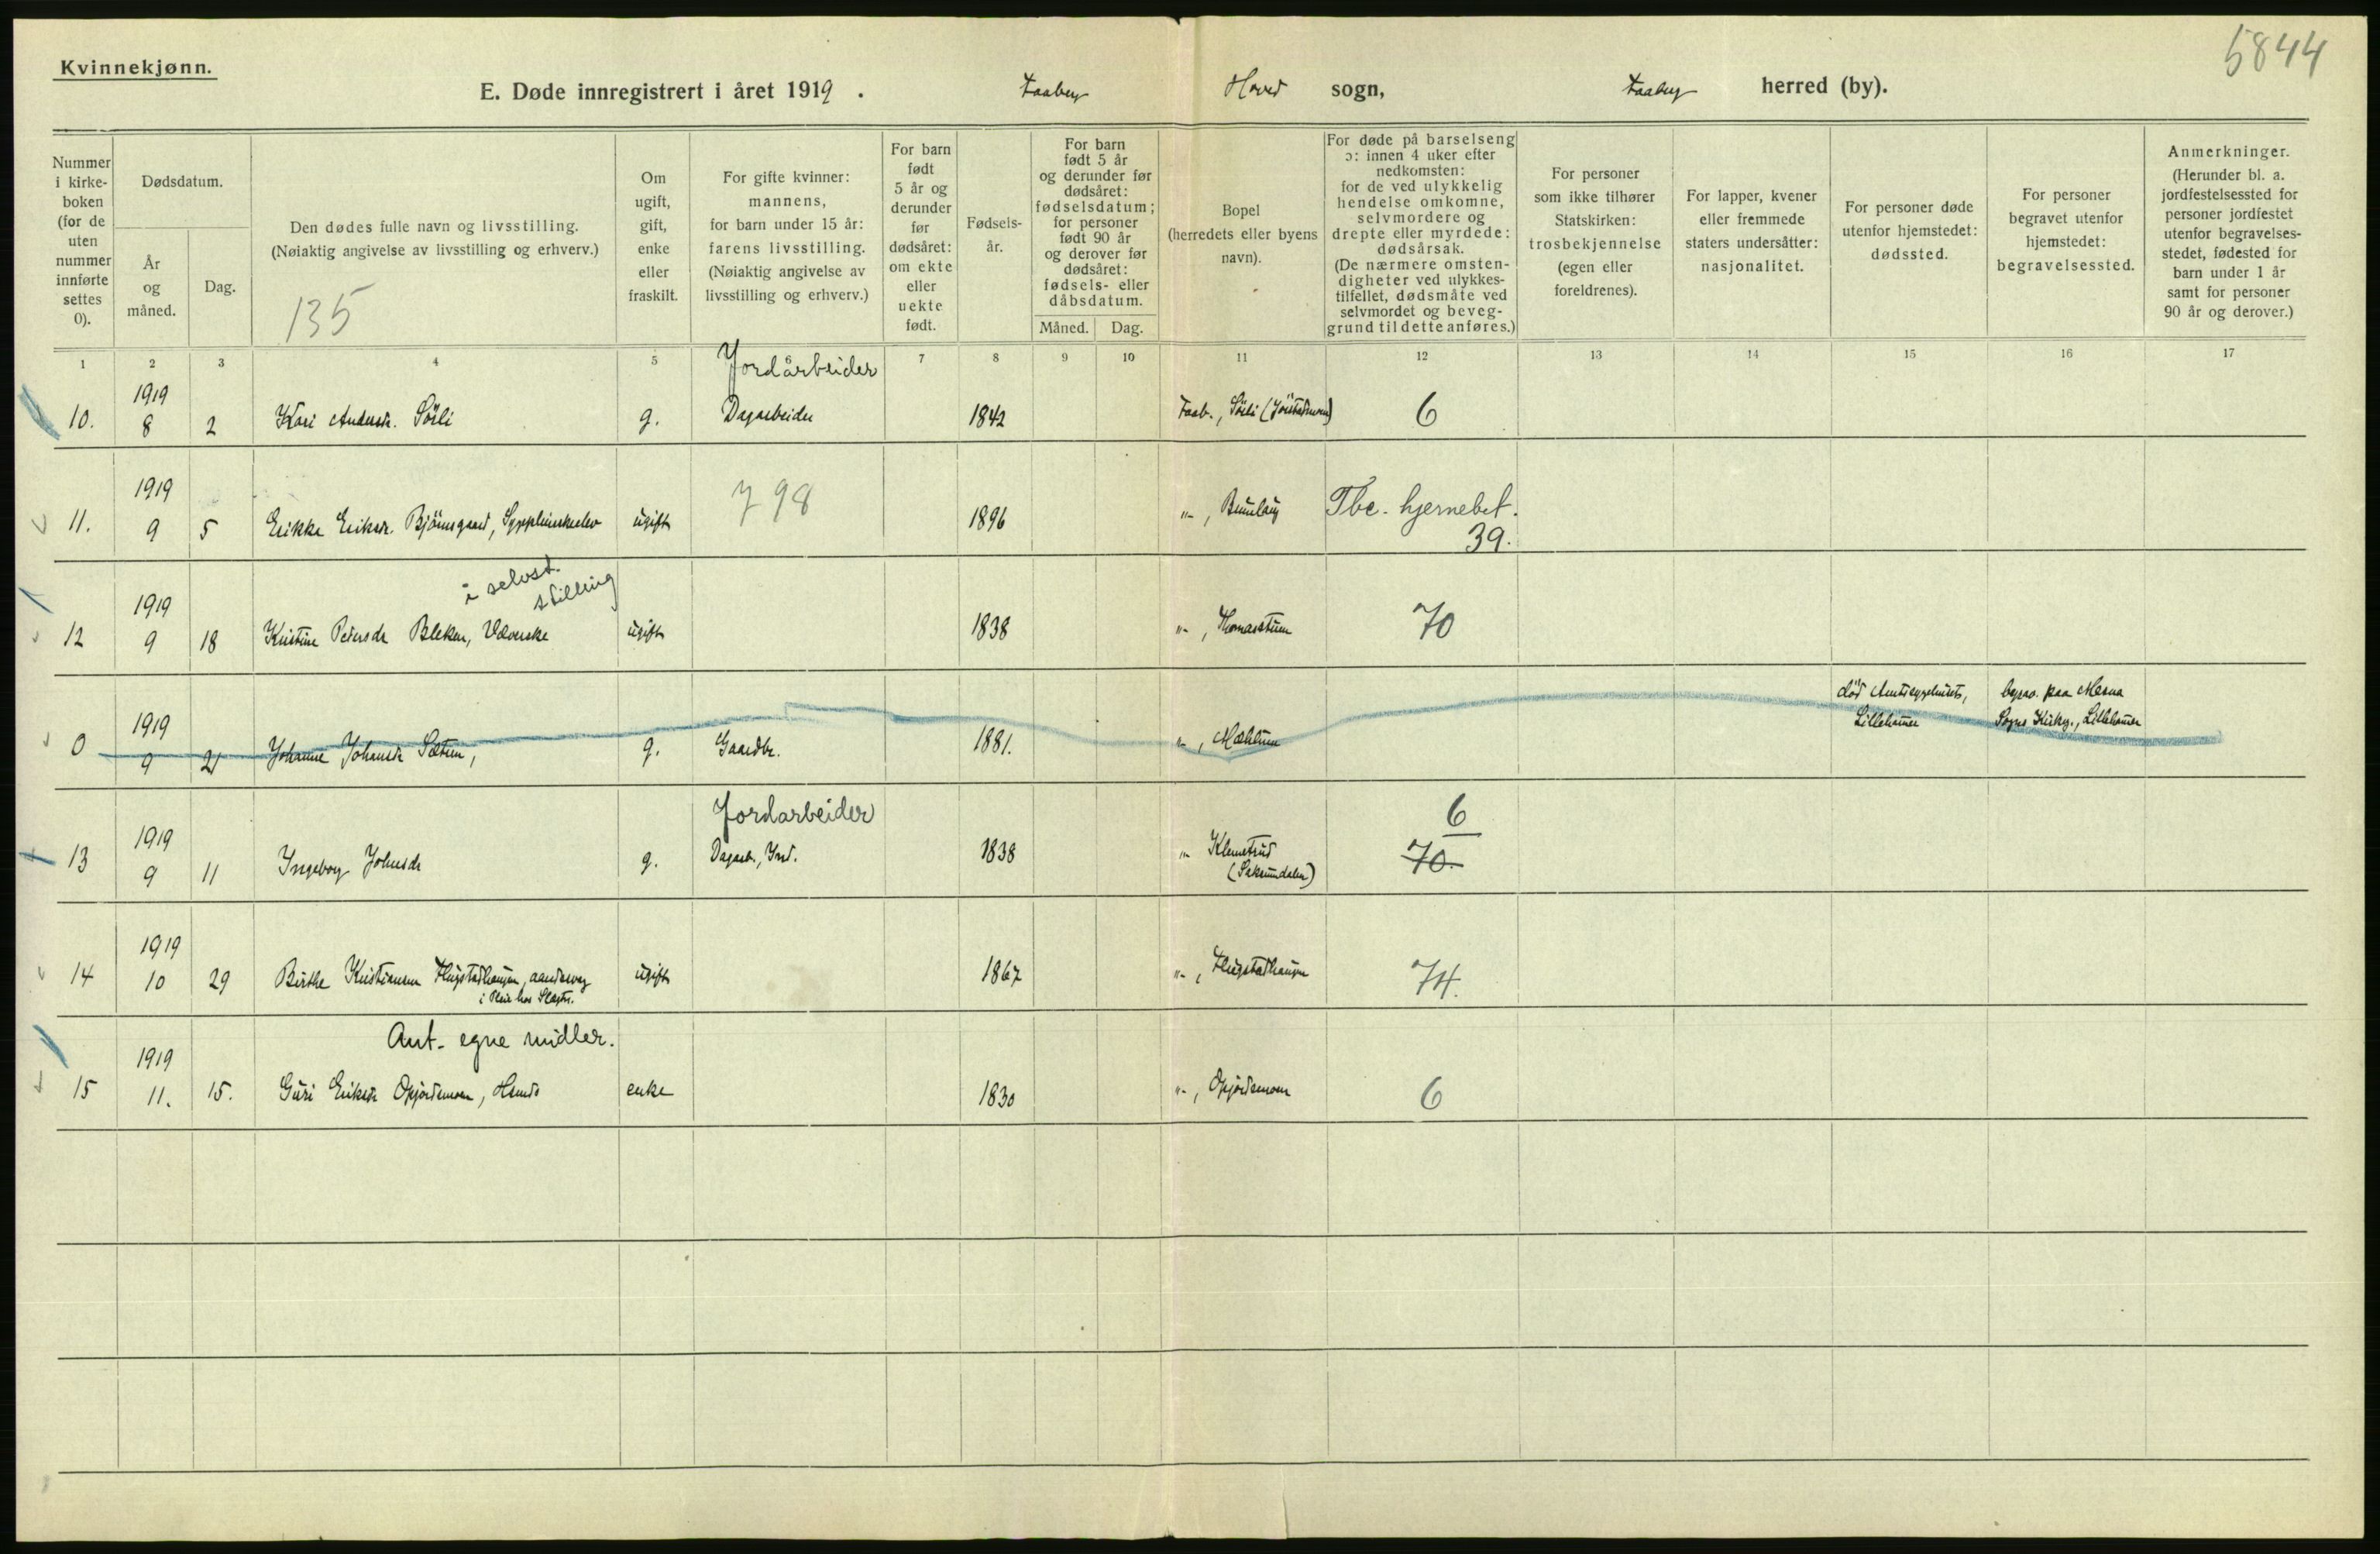 5844
Kvinnekjønn.
E. Døde innregistrert i året 1919 . Faaberg Hoved sogn, Faaberg herred (by).
Nummer i kirke- boken (for de uten nummer innførte settes 0).
Dødsdatum.
År og måned.
Dag.
Den dødes fulle navn og livsstilling.
(Nøiaktig angivelse av livsstilling og erhverv.)
135
Om ugift, gift, enke eller fraskilt.
For gifte kvinner: mannens, for barn under 15 år: farens livsstilling. (Nøiaktig angivelse av livsstilling og erhverv.)
For barn født 5 år og derunder før dødsåret: om ekte eller uekte født.
Fødsels- år.
For barn født 5 år og derunder før dødsåret: fødselsdatum; for personer født 90 år og derover før dødsåret: fødsels- eller dåbsdatum.
Måned. Dag.
Bopel (herredets eller byens navn).
For døde på barselseng ɔ: innen 4 uker efter nedkomsten: for de ved ulykkelig hendelse omkomne, selvmordere og drepte eller myrdede: dødsårsak. (De nærmere omsten- digheter ved ulykkes- tilfellet, dødsmåte ved selvmordet og beveg- grund til dette anføres.)
For personer som ikke tilhører Statskirken: trosbekjennelse (egen eller foreldrenes).
For lapper, kvener eller fremmede staters undersåtter: nasjonalitet.
For personer døde utenfor hjemstedet: dødssted.
For personer begravet utenfor hjemstedet: begravelsessted.
Anmerkninger. (Herunder bl. a. jordfestelsessted for personer jordfestet utenfor begravelses- stedet, fødested for barn under 1 år samt for personer 90 år og derover.)
1 2 3 4 5 7 8 9 10 11 12 13 14 15 16 17
Jordarbeider
10. 1919 8 2 Kari Andersdr. Sörli g. Dagarbeider 1842 Faab., Sörli (Jörstadmoen) 6
11. 1919 9 5 Erikke Eriksdr. Björnsgaard, ugift 798 1896 "- , Tbc. hjernebet. 39.
i selvst. stilling
12 1919 9 18 Kristine Pedersdr Bleken, Væverske ugift 1838 "- , 70
0 1919 9 21 Johanne Johansdr Sætum, g. Gaardbr. 1881. "- , Mæhlum död Amtssygehuset, Lillehamer begrav. paa Mesna Sogns Kirkeg., Lillehamer
Jordarbeider
13 1919 9 11 Ingeborg Johnsdr g. Dagarb., Ind. 1838 "- Klemetsrud (Saksumdalen) 6 70.
14 1919 10 29 Birthe Kristiansen ugift 1867 "- , 74.
Ant. egne midler.
15 1919 11. 15. Guri Eriksdr Opjordsmoen, enke 1830 "- , Opjordsmoen 6